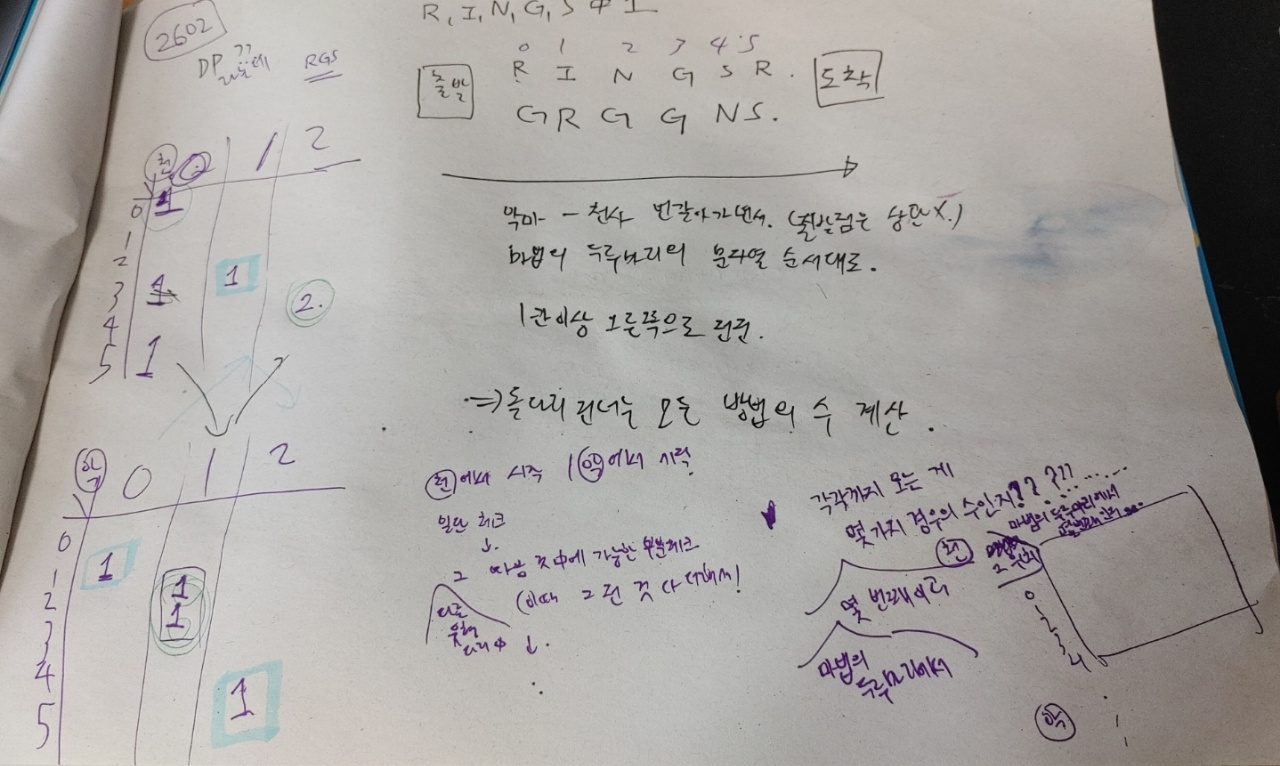 R, I, N, G, S 中 1
2602
DP ??
RGS
0 1 2 3 4 5
출발 R I N G S R. 도착
G R G G N S.
천 0 1 2
0 1
1
2
3 1 1 2.
4
5 1
악마 - 천사 번갈아가면서. (출발점은 상관X.)
마법의 두루마리의 문자열 순서대로.
1칸이상 오른쪽으로 전진.
⇒ 돌다리 건너는 모든 방법의 수 계산.
악 0 1 2
0
1 1
2 1
3 1
4
5 1
천에서 시작 / 악에서 시작
일단 체크
↓.
그 다음 것 中에 가능한 부분체크
(이때 그런 것 다 더해서!)
다른
다리中 ↓.
각각까지 오는 게
몇가지 경우의 수인지?? ???
마법의 두루마리에서
몇번째인지...
천
그 위치
몇 번째이고
0
1
2
3
4
마법의
두루마리에서
악